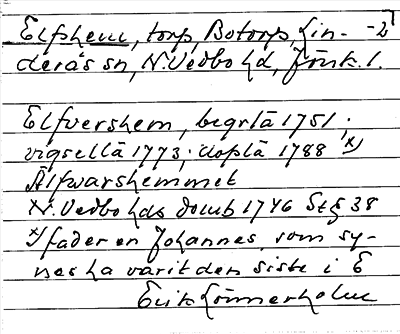 Elfshem, torp, Botorp, Lin- -2
derås sn, N. Vedbo hd, Jönk. l.
Elfvershem, begrlä 1751;
vigsellä 1773; doplä 1788 x)
Älfwarshemmet
N. Vedbo hds domb 1746 St § 38
x) fadern Johannes, som sy-
nes ha varit den siste i E
Erik Lönnerholm